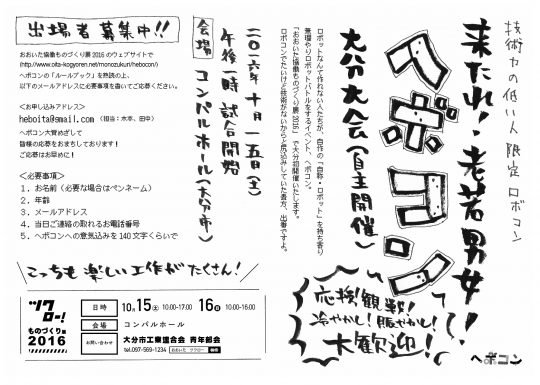 技術力の低い人限定ロボコン
来たれ!老若男女!
ヘボコン
大分大会(自主開催)
ロボットなんて作れない人たちが、自作の「自称・ロボット」を持ち寄り
無理やりロボットバトルをするイベント、ヘボコン。
「おおいた協働ものづくり展2016」で大分初開催いたします。
ロボコンでたいけど技術がないからと尻込みしていた貴方、出番ですよ。
二〇一六年十月一五日(土)
午後一時試合開始
会場 コンパルホール(大分市)
出場者募集中!!
おおいた協働ものづくり展2016のウェブサイトで
(http://www.oita-kogyoren.net/monozukuri/hebocon/)
ヘボコンの「ルールブック」を熟読の上、
以下のメールアドレスに必要事項を書いてご応募ください。
<お申し込みアドレス>
heboita@gmail.com (担当:水本、田中)
ヘボコン大賞めざして
皆様の応募をおまちしております!
ご応募はお早めに!
<必要事項>
1.お名前(必要な場合はペンネーム)
2.年齢
3.メールアドレス
4.当日ご連絡の取れるお電話番号
5.ヘボコンへの意気込みを140文字くらいで
\こっちも楽しい工作がたくさん!/
ツクロー!
ものづくり展
2016
日時 10月15(土)10:00-17:00 16(日)10:00-16:00
会場 コンパルホール
お問い合わせ 大分市工業連合会 青年部会
tel.097-569-1234 おおいた ツクロー 検索
応援!観戦!
冷やかし!賑やかし!
大歓迎!
ヘボコン